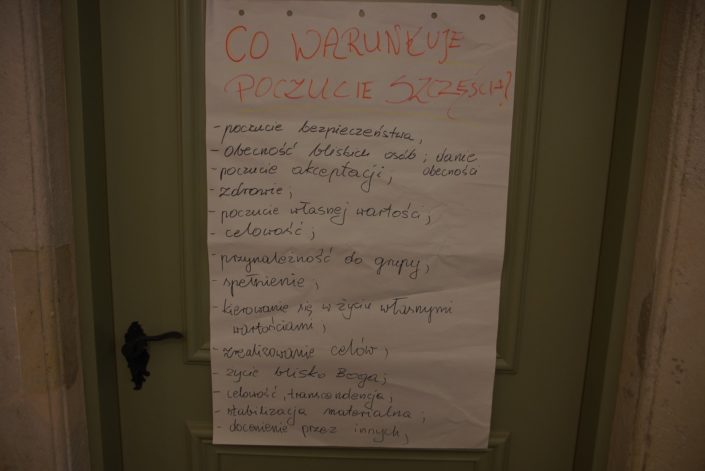 CO WARUNKUJE
POCZUCIE SZCZĘŚCIA?
- poczucie bezpieczeństwa,
- obecność bliskich osób; danie
- poczucie akceptacji; obecności
- zdrowie;
- poczucie własnej wartości;
- celowość;
- przynależność do grupy;
- spełnienie;
- kierowanie się w życiu własnymi
wartościami;
- zrealizowanie celów;
- życie blisko Boga;
- celowość, transcendencja;
- stabilizacja materialna;
- docenienie przez innych;